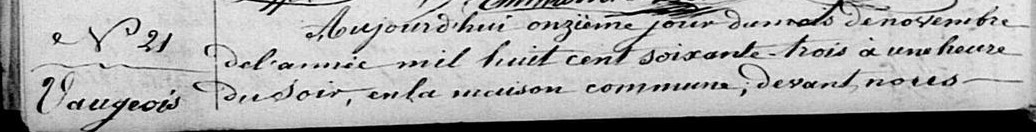 N° 21
Vaugeois
Aujourd'hui onzième jour du mois de novembre
de l'année mil huit cent soixante-trois à une heure
du soir, en la maison commune, devant nous